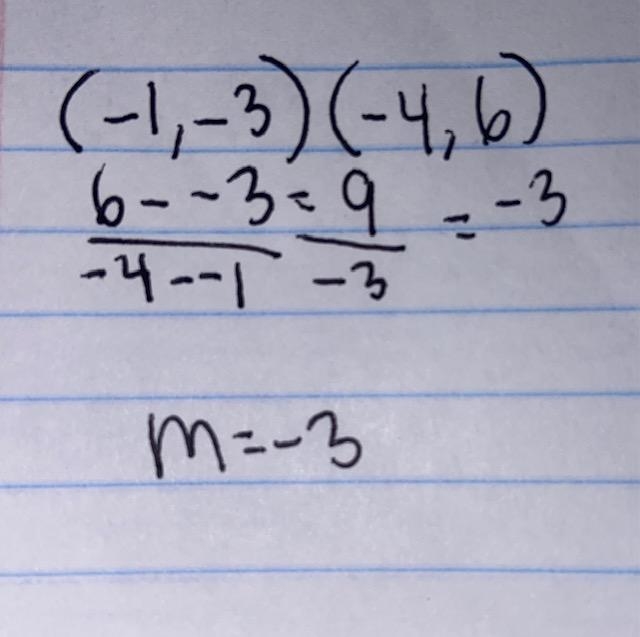 (-1,-3)(-4,6)
6--3 = 9 = -3
-4--1 -3
m=-3